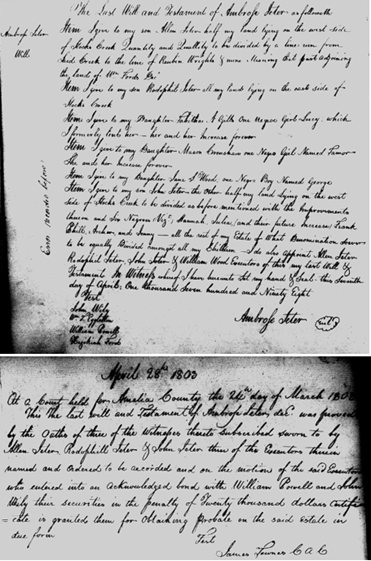 The Last Will and Testament of Ambrose Jeter as followeth
Ambrose Jeter
Will
Item I give to my son Allen Jeter half my land lying on the west side
of Stocks Creek Quantity and Quality to be divided by a line run from
said Creek to the line of Reuben Wrights & mine Meaning that part adjoining
the lands of Wm Fords
Item I give to my son Rodophil Jeter all my lands lying on the east side of
Stocks Creek
Item I give to my Daughter Tabitha Gills One Negroe Girl Lucy which
I formerly lent her her and her Increase forever
Item I give to my Daughter one Negro Girl Named
She and her Increase forever
Item I give to my Daughter Jane S Wood, one Negro Boy Named George
Item I give to my son John Jeter the other half my land lying on the west
side of Stocks Creek to be divided as before mentioned with the Improvements
thereon and Six Negroes Viz Hannah, and their future Increase Frank
and all the rest of my Estate of What Denomination soever
to be equally Divided amongst all my Children I do also Appoint Allen Jeter
Rodophil Jeter, John Jeter & William Wood Executors of this my last Will &
Testament In Witness whereof I have hereunto set my hand & Seal this Seventh
day of April One thousand Seven hundred and Ninety Eight
Test
John Wily
Ambrose Jeter
William Powell
Hezekiah Fords
April 28th 1803
At a Court held for Amelia County the 24th day of March
This the last will and Testament of Ambrose Jeter, decd was proved
by the Oaths of three of the Witnesses thereto subscribed sworn to by
Allen Jeter Rodophill Jeter & John Jeter three of the Executors therein
named and Ordered to be recorded and on the motion of the said Executors
who entered into an Acknowledged bond with William Powell and John
Wily their securities in the penalty of Twenty thousand dollars Certifi
= cate is granted them for Obtaining Probate on the said Estate in
due form
Test
James Townes C A C